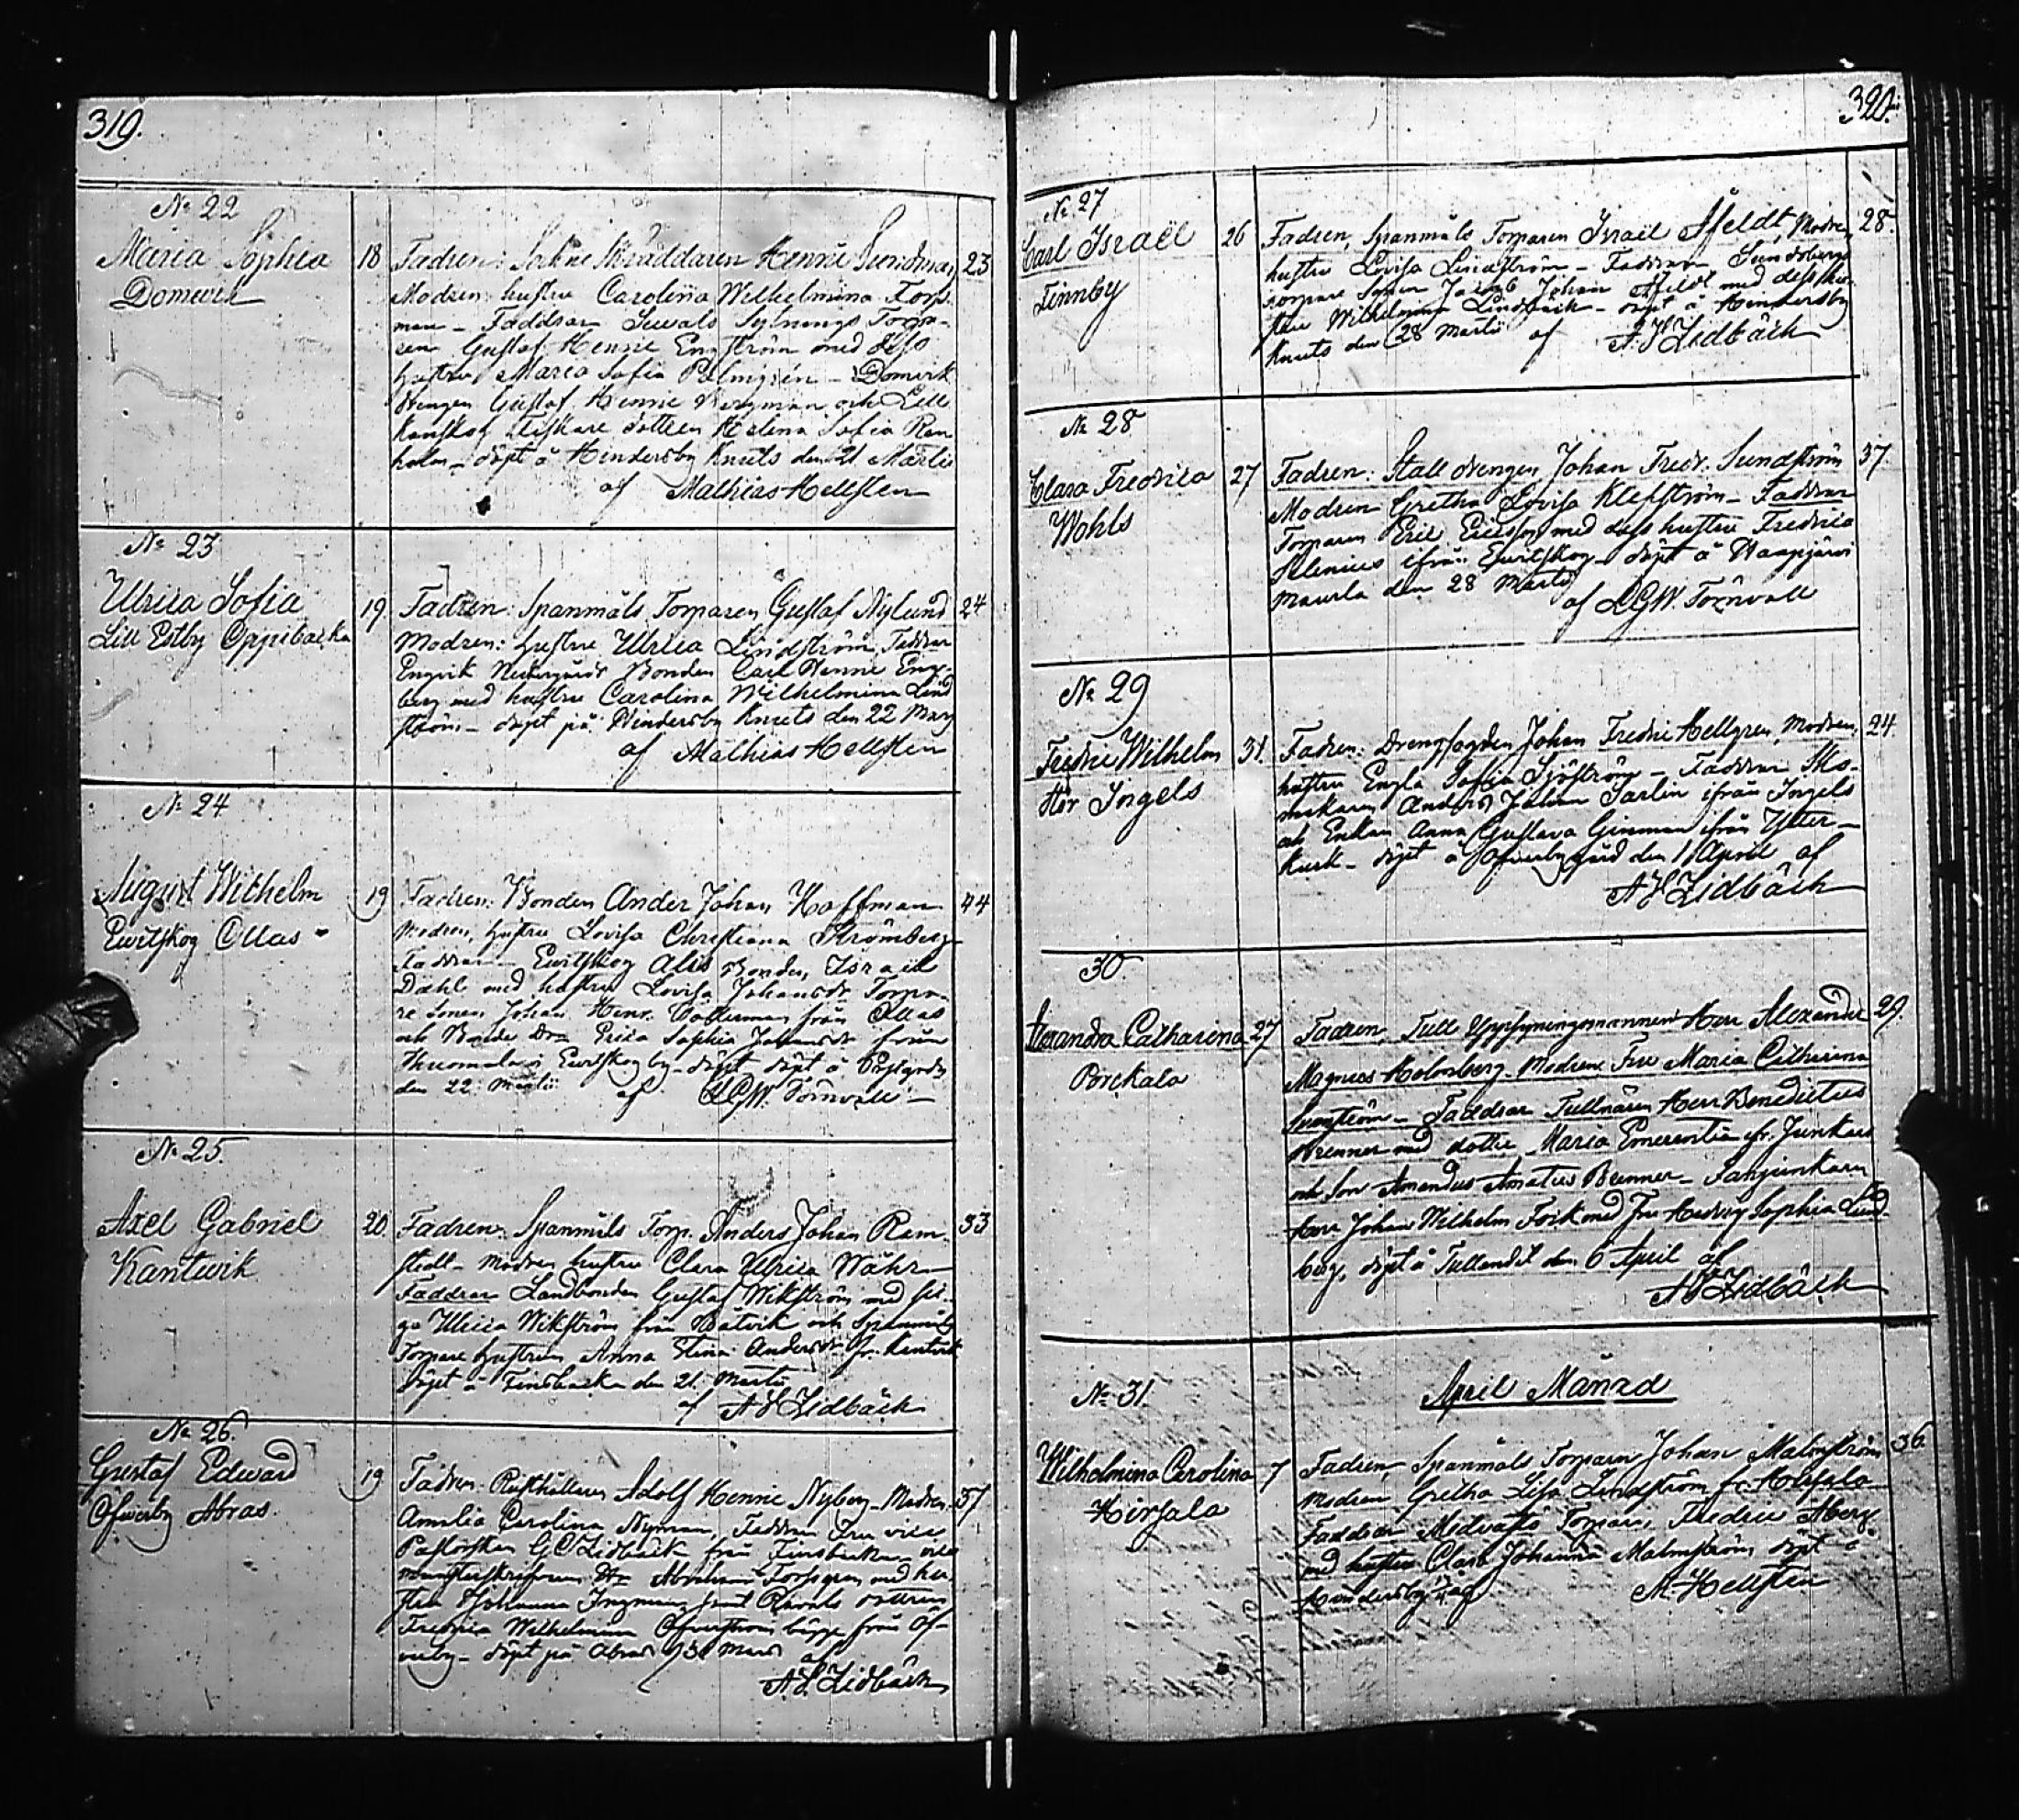 319.
No 22
Maria Sophia
Domevik
18
Fadren: Sockne Skräddaren Henric Sundman
23
Modren: hustru Carolina Wilhelmina Forss-
man - Faddrar Siwals Sytnings Torpa-
ren Gustaf Henric Engström med dess
hustru Maria Sofia Palmgrén - Domvik
drengen Gustaf Henric Bergman och Lill
Kanskog Fiskare dottren Helena Sofia Ren
holm - döpt å Hindersby Knuts den 21 Martii
af Mathias Hellsten
No 23
Ulrica Sofia
Lill Estby Oppibacka
19
Fadren: Spanmåls Torparen Gustaf Nylund
24
Modren: hustru Ulrica Lindström, Faddrar
Engvik Nedergårds Bonden Carl Henric Eng-
berg med hustru Carolina Wilhelmina Lind
ström - döpt på Hindersby Knuts den 22 Mars
af Mathias Hellsten
No 24
August Wilhelm
Evitskog Ollas
19
Fadren: Bonden Ander Johan Hoffman
44
Modren, hustru Lovisa Christiana Strömberg
Faddrar - Evitskog Alis Bonden, Israel
Dahl med hustru Lovisa Johansdr Torpa-
re Sonen Johan Henr. från Ollas
och Bonde Dr Erica Sophia från
Evitskog by - döpt döpt å
den 22: Martii
af L.G.W. Törnvall -
No 25.
Axel Gabriel
Kantvik
20.
Fadren: Spanmåls Torp. Anders Johan Ram-
33
stedt - modren hustru Clara Ulrica Wahr-
Faddrar Landbonden Gustaf Wikström med pi-
ga Ulrica Wikström från Båtvik och Spanmåls
Torpare hustrun Anna Stina Andersdr fr. Kantvik
döpt å Finsbacka den 21. Martii
af A V Lidbäck
No 26.
Gustaf Edward
Öfwerby Abras
19
Fadren: Rusthållaren Adolf Henric Nyberg - Modren
37
Amalia Carolina Nyman, Faddrar Fru vice
Pastorskan G C Lidbäck från Finsbacka - vice
Hr Abraham Forsgren med hu-
stru Johanna samt dottren
Fredrica Wilhelmina bägge från Öf-
verby - döpt på Abras d 31 Mars
af
A. V. Lidbäck
320.
No 27
Carl Israël
Finnby
26
Fadren, Spanmåls Torparen Israël Åfeldt, Modren
28.
hustru Lovisa Lindström - Faddrar Sundsbergs
torpare Sonen Jacob Johan Åfeldt med dess hu-
stru Wilhelmina Lindbäck - döpt å Hindersby
Knuts den 28 Martii af A. V Lidbäck
No 28
Clara Fredrica
Wohls
27
Fadren: Stall drengen Johan Fredr. Sundström
37
Modren Gretha Lovisa Klefström - Faddrar
Torparen Eric Ericsson med dess hustru Fredrica
Selenius ifrån Evitskog - döpt å Haapjärvi
Maurla den 28 Martii
af L.G.W. Törnvall
No 29
Fredric Wilhelm
Stor Ingels
31.
Fadren: Drengfogden Johan Fredric Hellgren, Modren
24.
hustru Engla Sofia Sjöström - Faddrar Sko-
makaren Anders Johan Sarlin ifrån Ingels
och Enkan Anna Gustava Ginman ifrån Ytter-
kurk - döpt å Öfwerby gård den 1 April af
A V Lidbäck
30.
Alexandra Catharina
Porckala
27
Fadren, Tull Uppsyningsmannen Herr Alexander
29.
Magnus Holmberg - Modren Fru Maria Catharina
- Faddrar Tullnären Herr Benedictus
Brenner med dotter Maria Emerentia fr. Junkars
och Son Amandus Amatus Brenner - Fanjunkaren
Herr Johan Wilhelm Fock med Fru Hedvig Sophia Lund-
berg, döpt å Tullandet den 6 April af
A V Lidbäck
April Månad
No 31.
Wilhelmina Carolina
Hirsala
7
Fadren, Spanmåls Torparen Johan Malmström
36
Modren Gretha Lisa Lindström fr. Hirsala
Faddrar Medvasts Torparen Fredric Åberg
med hustru Clara Johanna Malmström döpt å
Hindersby af M. Hellsten